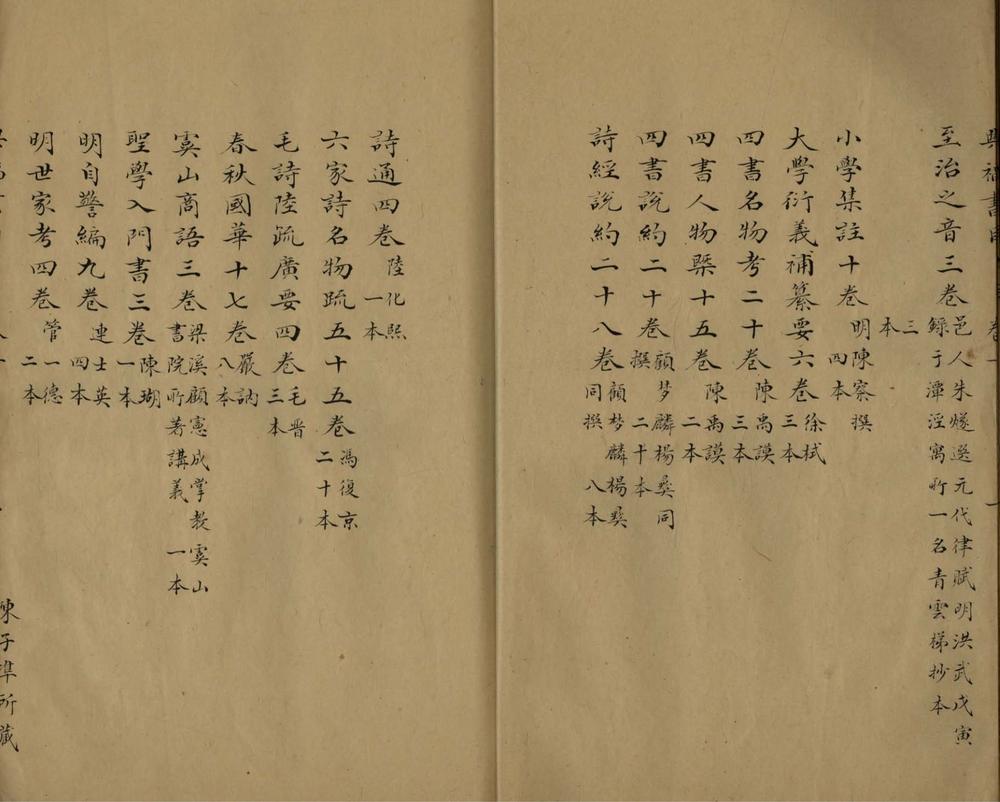 至治之音三卷 邑人朱燧選元代律賦明洪武戊寅錄于潭涇寓所一名青雲梯抄本
三本
小學集註十卷 明陳察撰 四本
大學衍義補纂要六卷 徐栻 三本
四書名物考二十卷 陳禹謨 三本
四書人物槩十五卷 陳禹謨 二本
四書說約二十卷 顧梦麟楊彞同撰 二十本
詩經說約二十八卷 顧梦麟楊彞同撰 八本
詩通四卷 陸化熙 一本
六家詩名物疏五十五卷 馮復京 二十本
毛詩陸疏廣要四卷 毛晋 三本
春秋國華十七卷 嚴訥 八本
虞山商語三卷 梁溪顧憲成掌教虞山書院所著講義 一本
聖學入門書三卷 陳瑚 一本
明自警編九卷 連士英 四本
明世家考四卷 管一德 二本
陳子準所藏